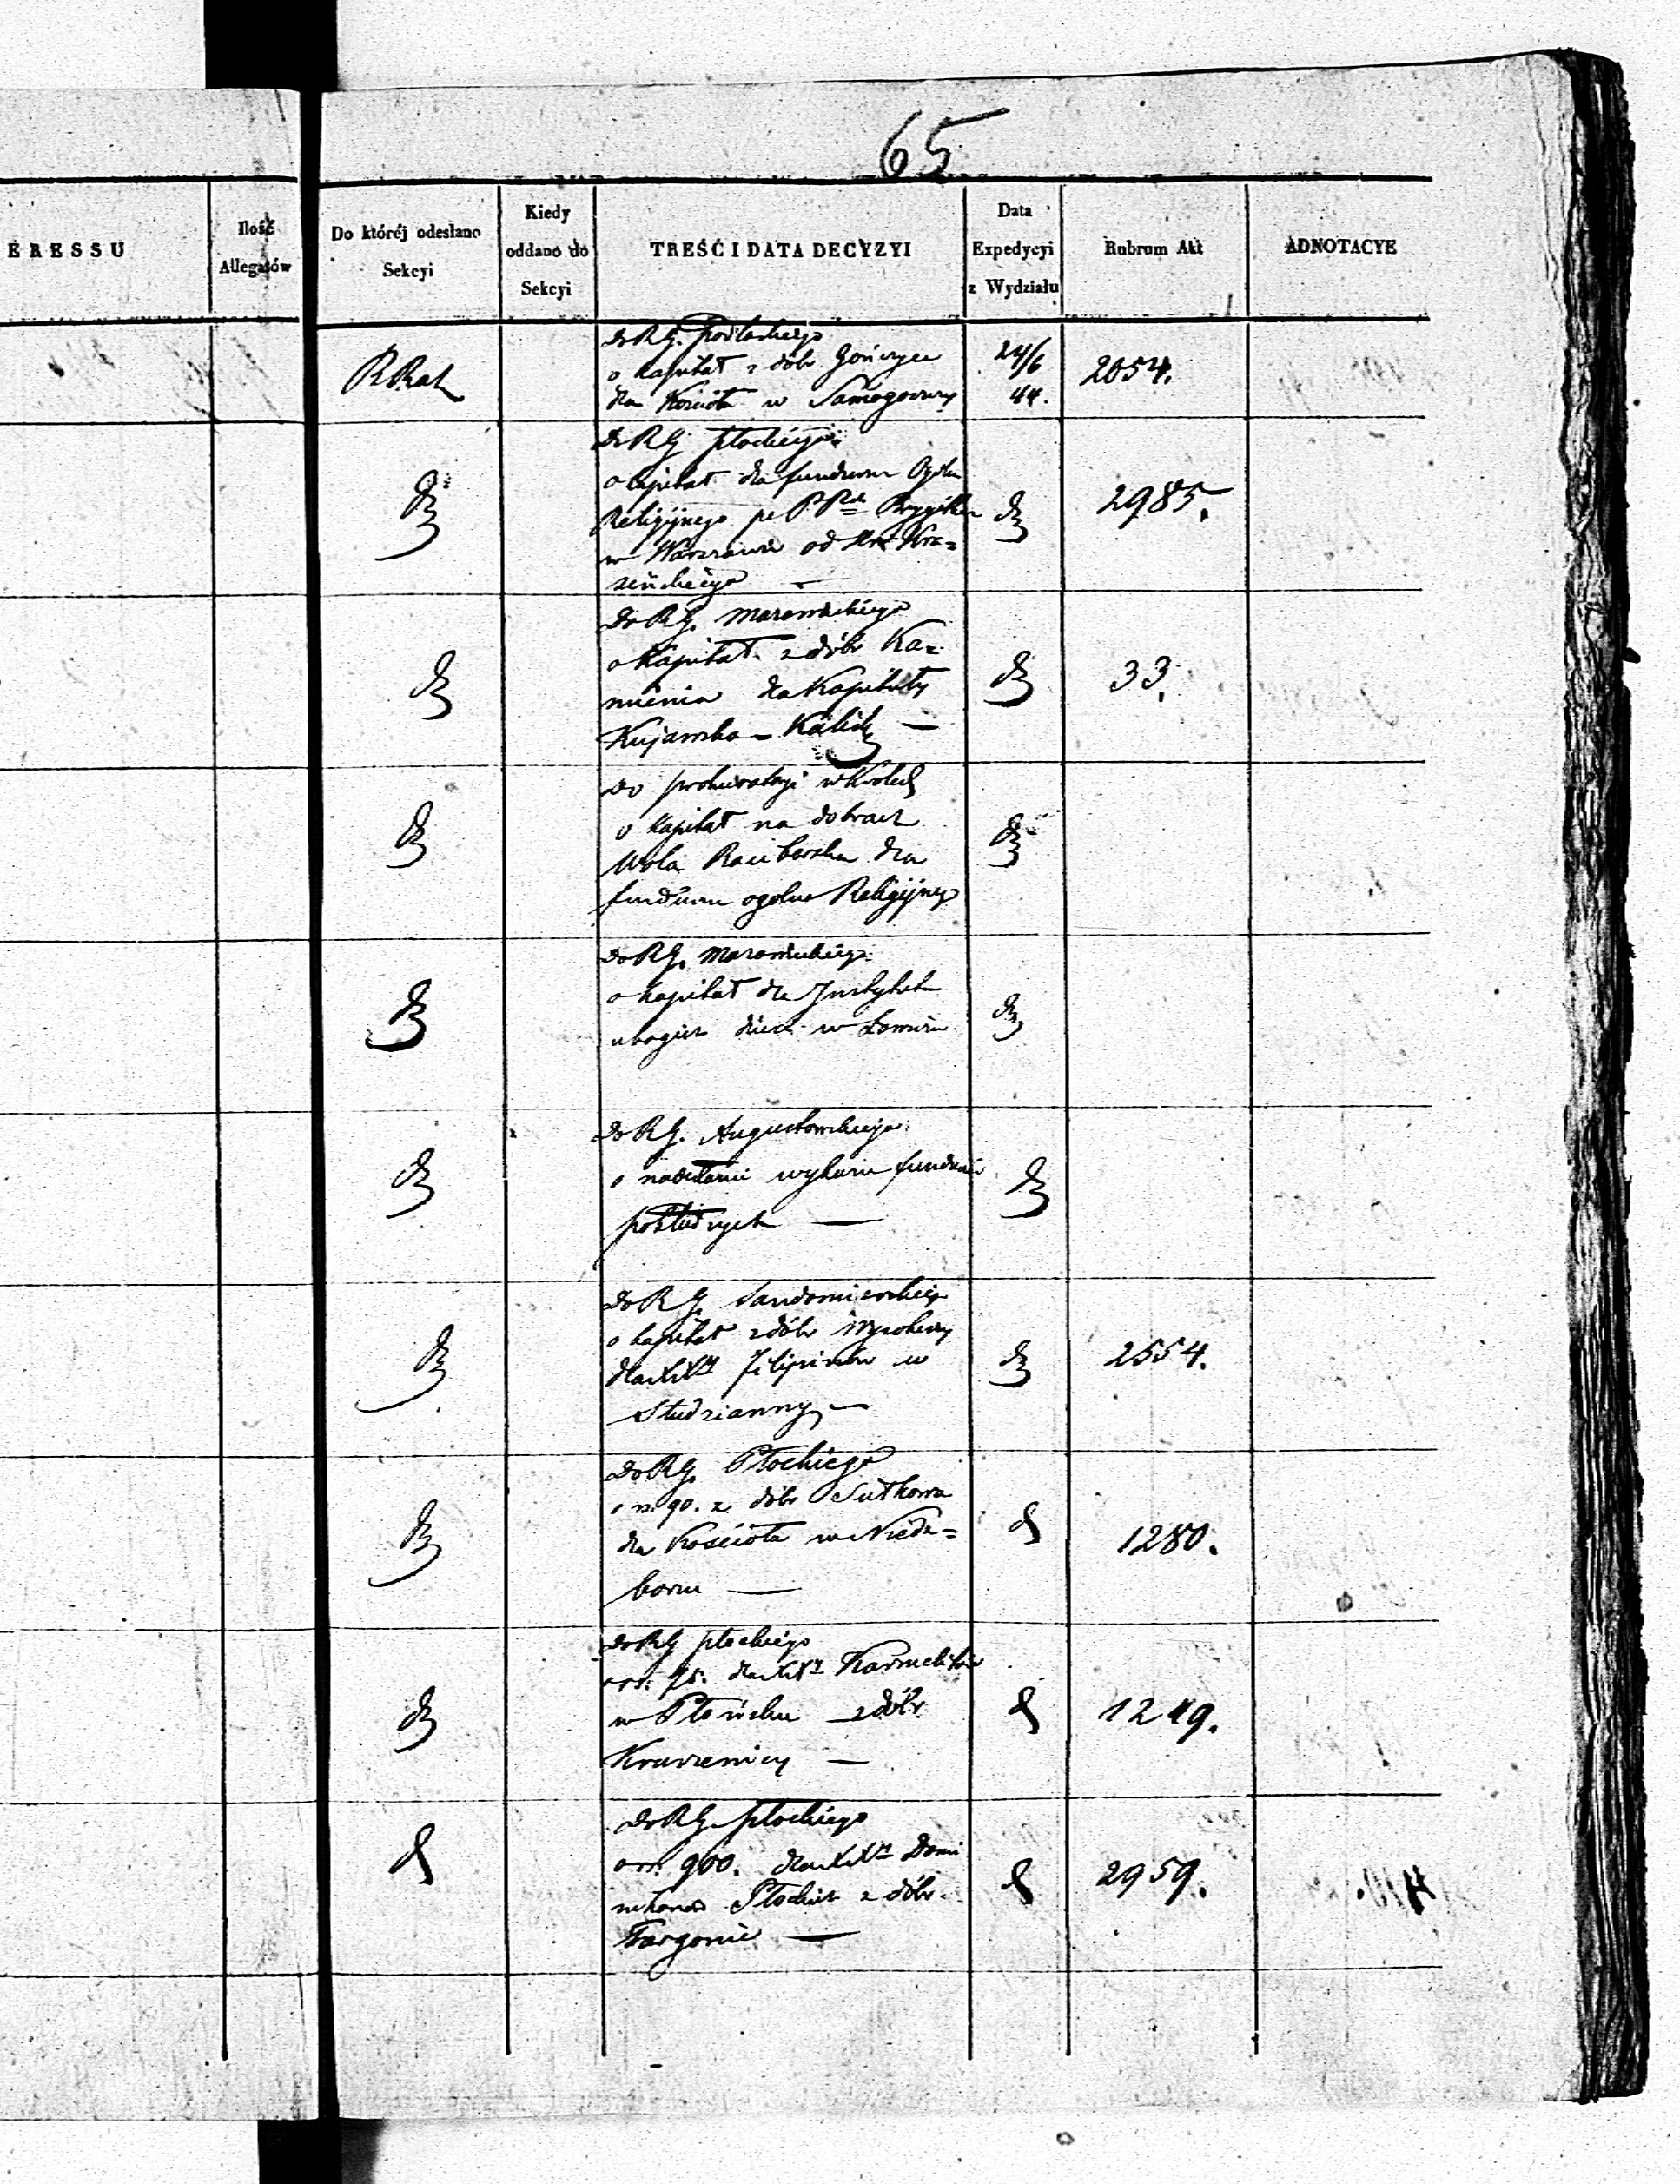 65
ERESSU
Ilość Allegatów
Do któréj odesłano Sekcyi
Kiedy oddano do Sekcyi
TREŚĆ I DATA DECYZYI
Data Expedycyi z Wydziału
Rubrum Akt
ADNOTACYE
RKat
Do RG. Podlaskiego
o kapitał z dóbr Gończyce
dla Kościoła w Samogoszczy
24/6
44.
2054.
Do RG Płockiego
o kapitał dla funduszu Ogólu
Religijnego po PP Brygitkach
w Warszawie od Kra=
sińskiego
2985.
Do RG. Mazowieckiego
o Kapitał z dóbr Ka=
mienia dla Kapituły
Kujawsko-Kalisk
33.
Do prokuratoryi w Króles
o kapitał na dobrach
Wola Raciborska dla
funduszu ogólno Religijneg
Do RG. Mazowieckiego
o kapitał dla Instytut
ubogich dzieci w Łomżu
Do RG. Augustowskiego
o nadesłanie wykazu funduszów
Do RG. Sandomierskieg
o kapitał z dóbr Wysokiny
dla XXy Filipinów w
Studzianny
2554.
Do RG. Płockiego
o rs. 90. z dóbr Sutkowa
dla Kościoła w Nieda=
borzu
1280.
Do RG Płockiego
o rs. 75. dla XXy Karmelitów
w Płońsku z dóbr
Kraszenicy
1249.
Do RG Płockiego
o rs. 900. dla XXy Domi
nikanów Płockich z dóbr
Targonie
2959.